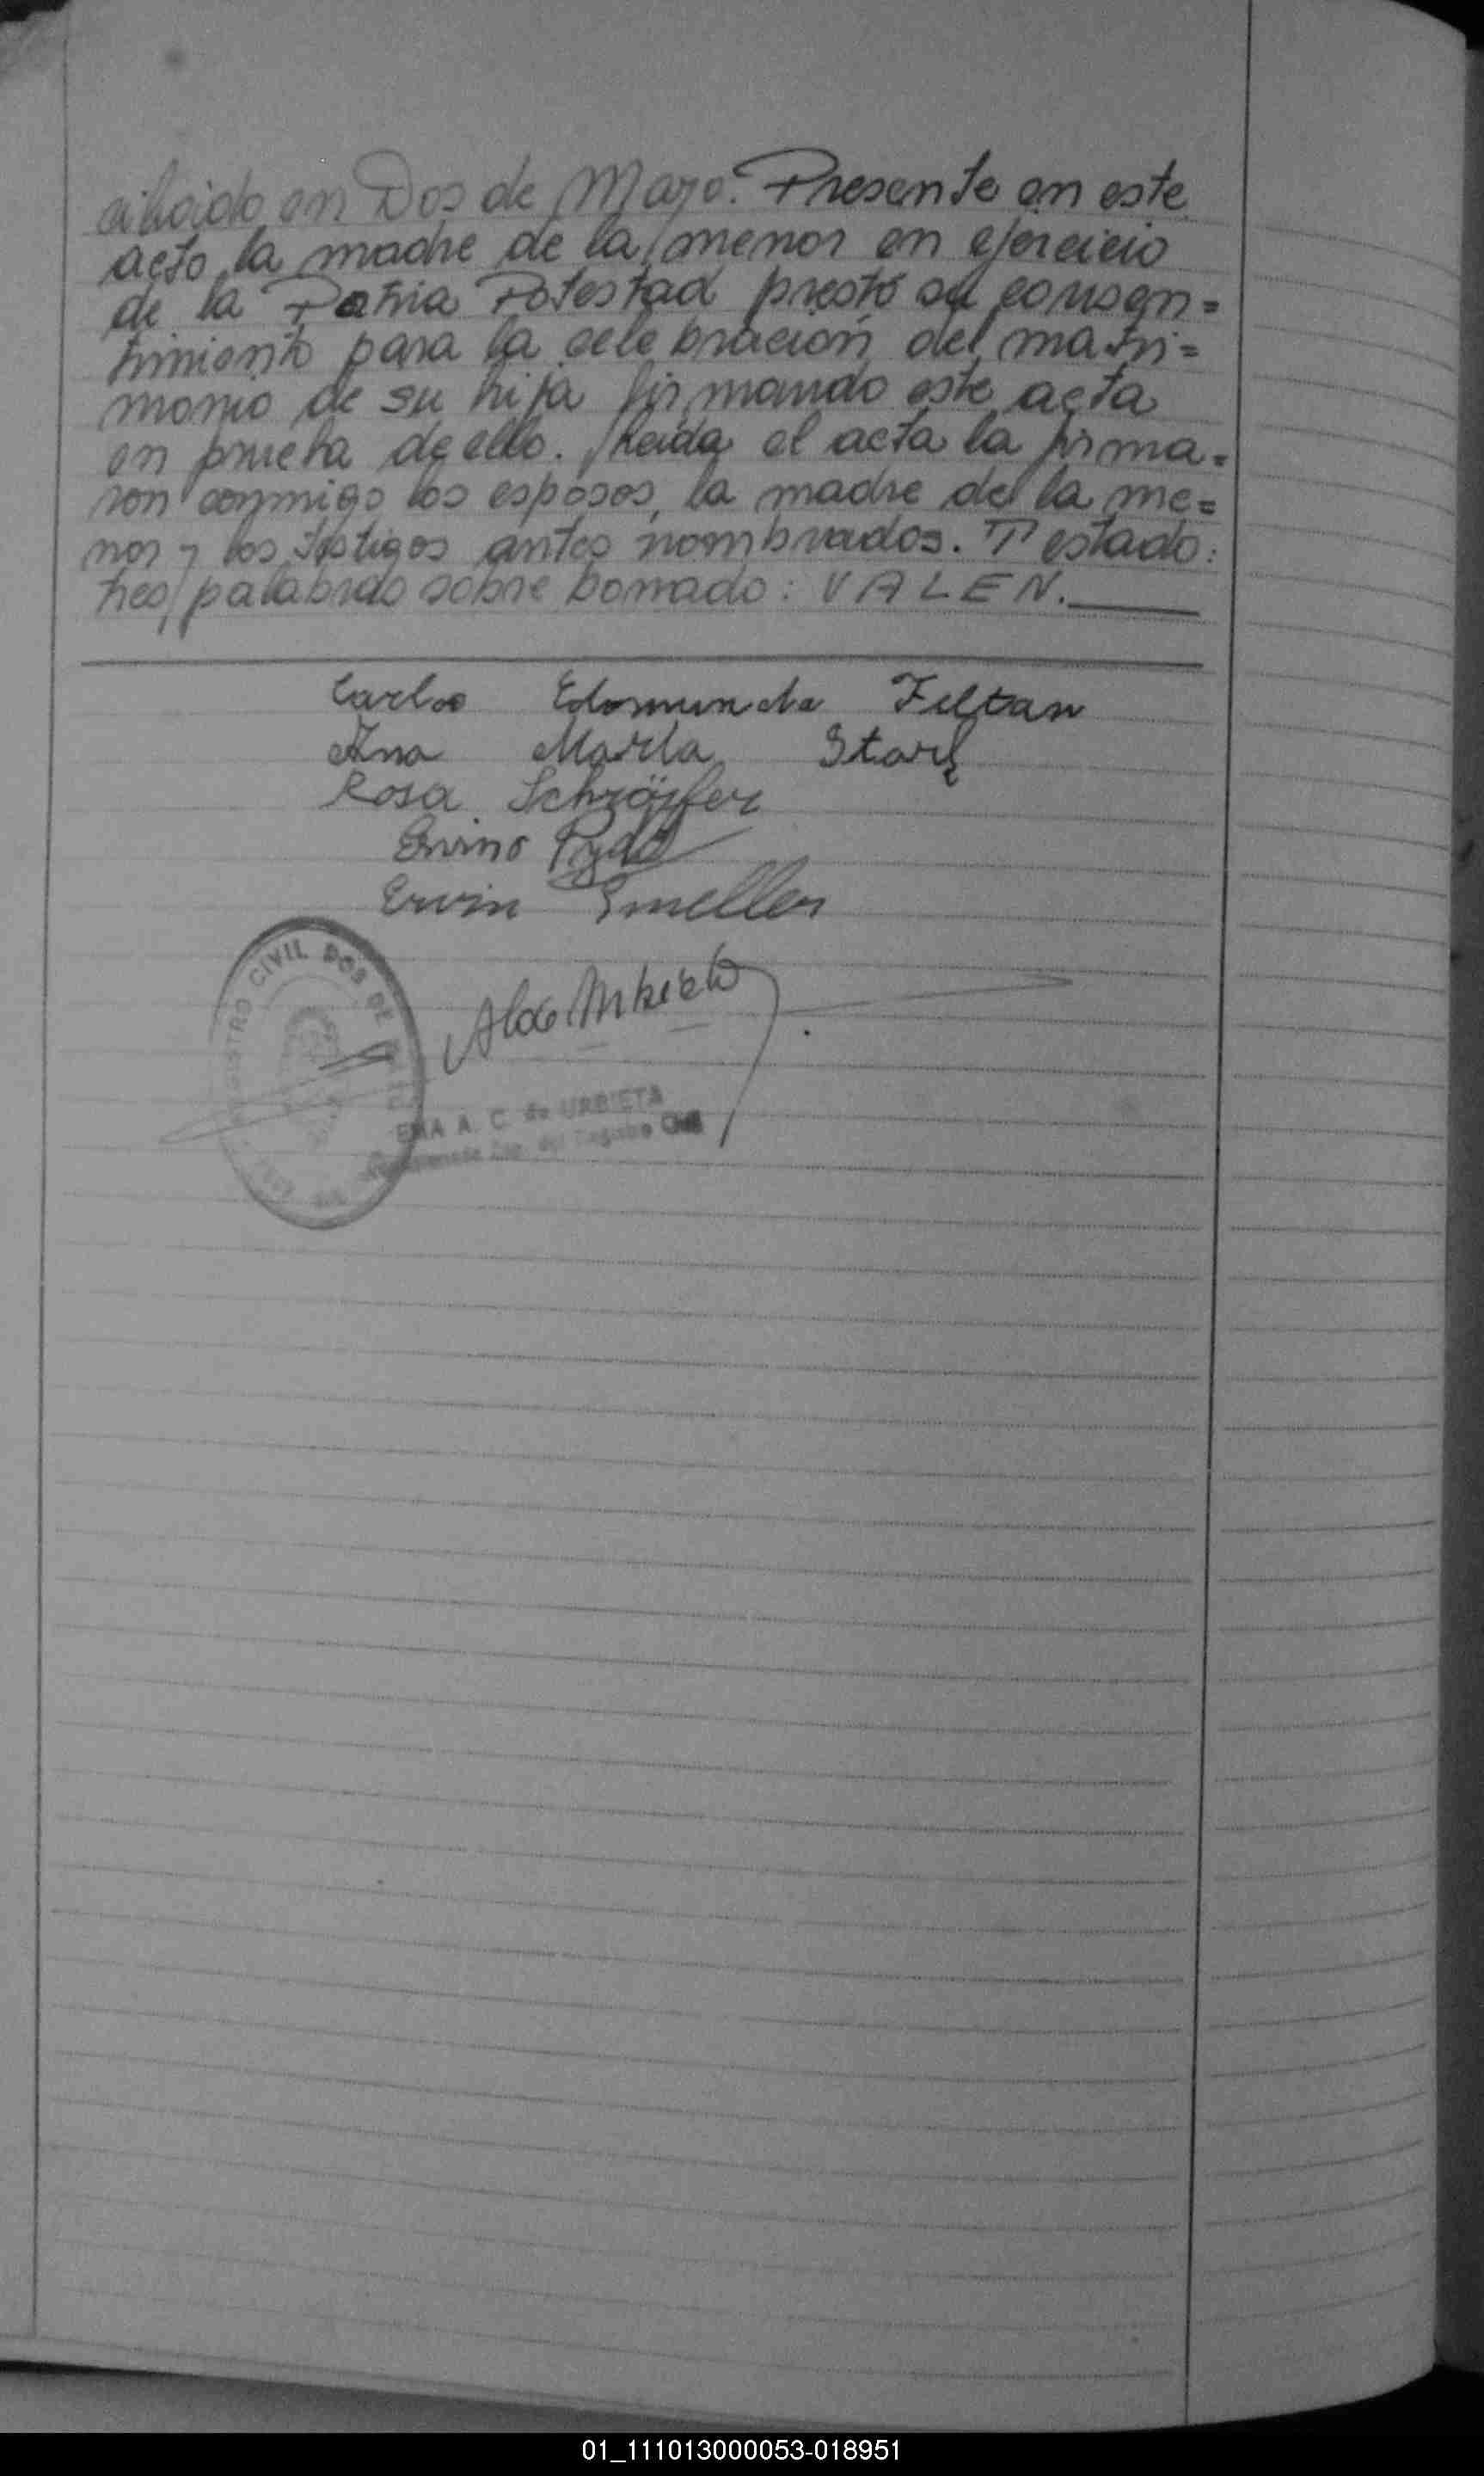 en Dos de Mayo. Presente en este
acto la madre de la menor en ejercicio
de la Patria Potestad prestó su consen=
timiento para la celebración del matri=
monio de su hija firmando este acta
en prueba de ello. Leida el acta la firma=
ron conmigo los esposos, la madre de la me=
nor y los testigos antes nombrados. Testado:
tres palabras sobre borrado: VALEN.
Carlos Edomundo Feltan
Ana Maria Stark
Rosa Schröpfer
Ervino
Ervin Smeller
REGISTRO CIVIL DOS DE
EMA A. C. de URBIETA
del Registro Civil
01_111013000053-018951